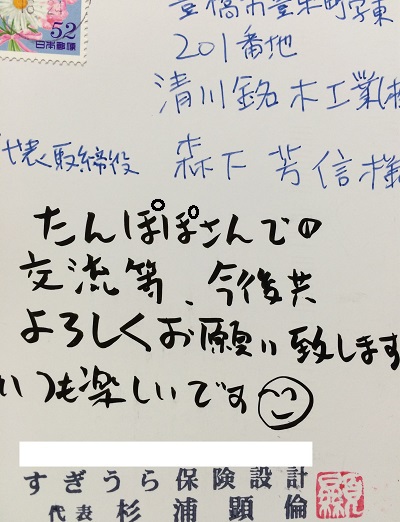 52
日本郵便
豊橋市豊栄町字東
201番地
清川銘木工業(株
代表取締役 森下芳信様
たんぽぽさんでの
交流等、今後共
よろしくお願い致します
いつも楽しいです
すぎうら保険設計
代表 杉浦顕倫